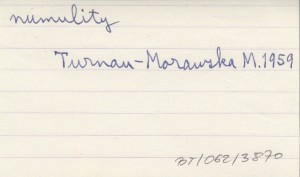 numulity
Turnau-Morawska M. 1959
BT/062/3870